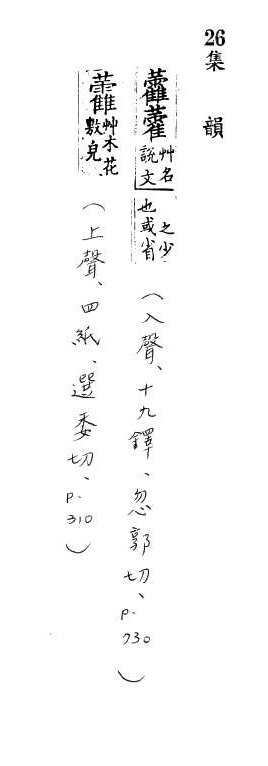 26 集韻
藿 艸名說文之少也或省 (入聲、十九鐸、忽郭切、p. 730)
艸木花敷皃 (上聲、四紙、選委切、p. 310)